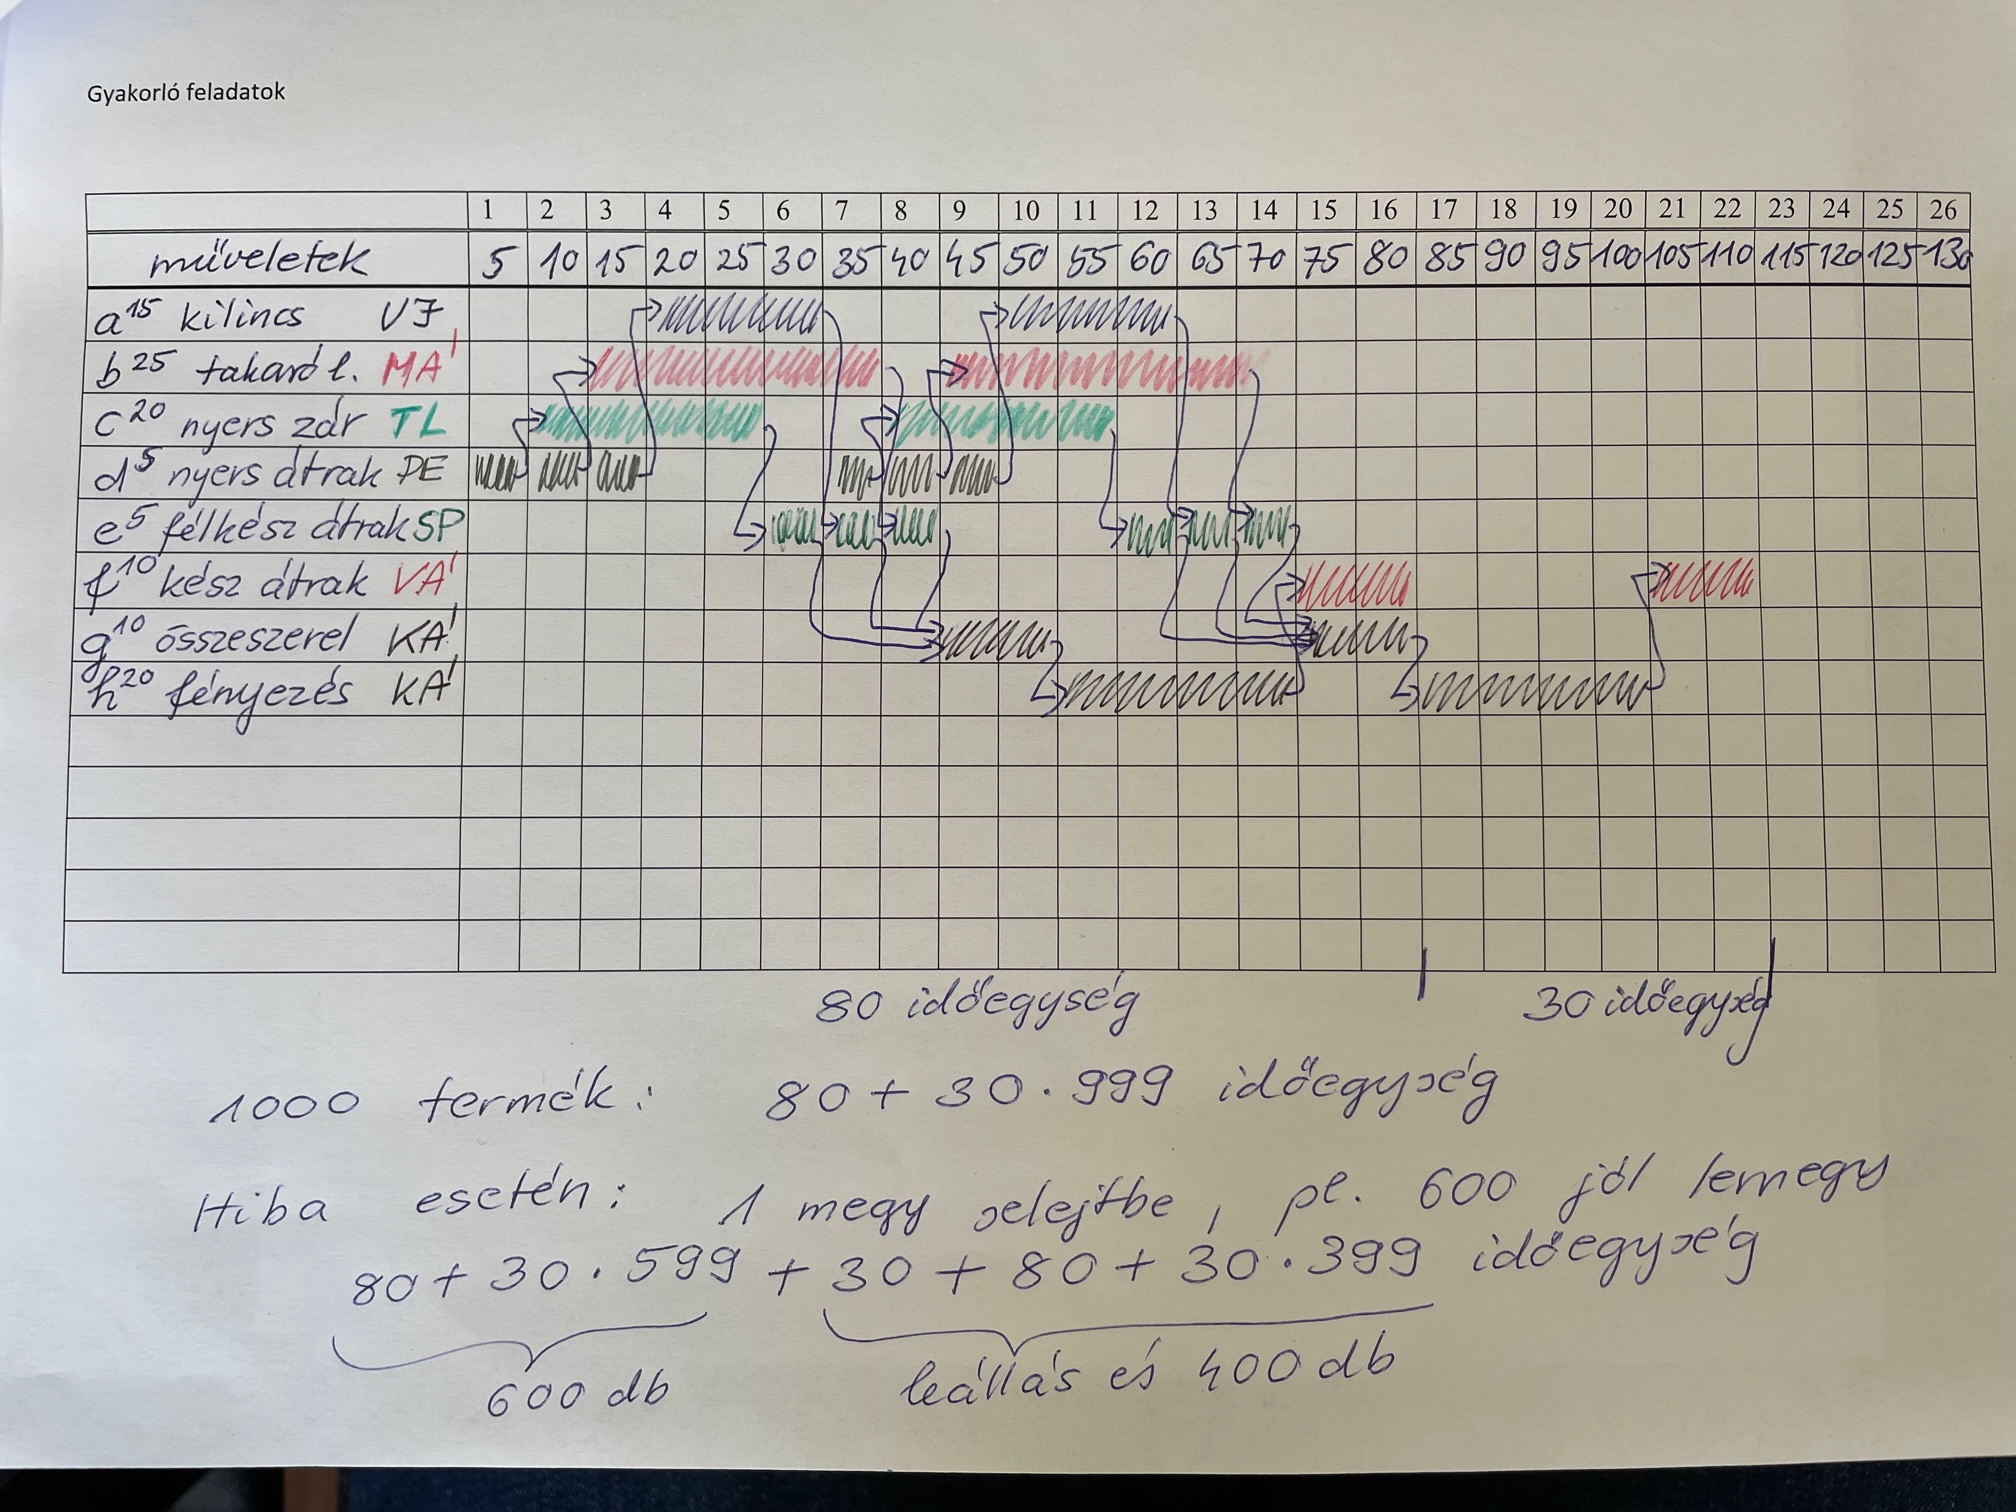 Gyakorló feladatok
1 2 3 4 5 6 7 8 9 10 11 12 13 14 15 16 17 18 19 20 21 22 23 24 25 26
műveletek 5 10 15 20 25 30 35 40 45 50 55 60 65 70 75 80 85 90 95 100 105 110 115 120 125 130
a 15 kilincs VJ
b 25 takaró l. MÁ
c 20 nyers zár TL
d 5 nyers átrak PE
e 5 félkész átrak SP
f 10 kész átrak VÁ
g 10 összeszerel KÁ
h 20 fényezés KÁ
80 időegység 30 időegység
1000 termék: 80 + 30 · 999 időegység
Hiba esetén: 1 megy selejtbe, pl. 600 jól lemegy
80 + 30 · 599 + 30 + 80 + 30 · 399 időegység
600 db leállás és 400 db